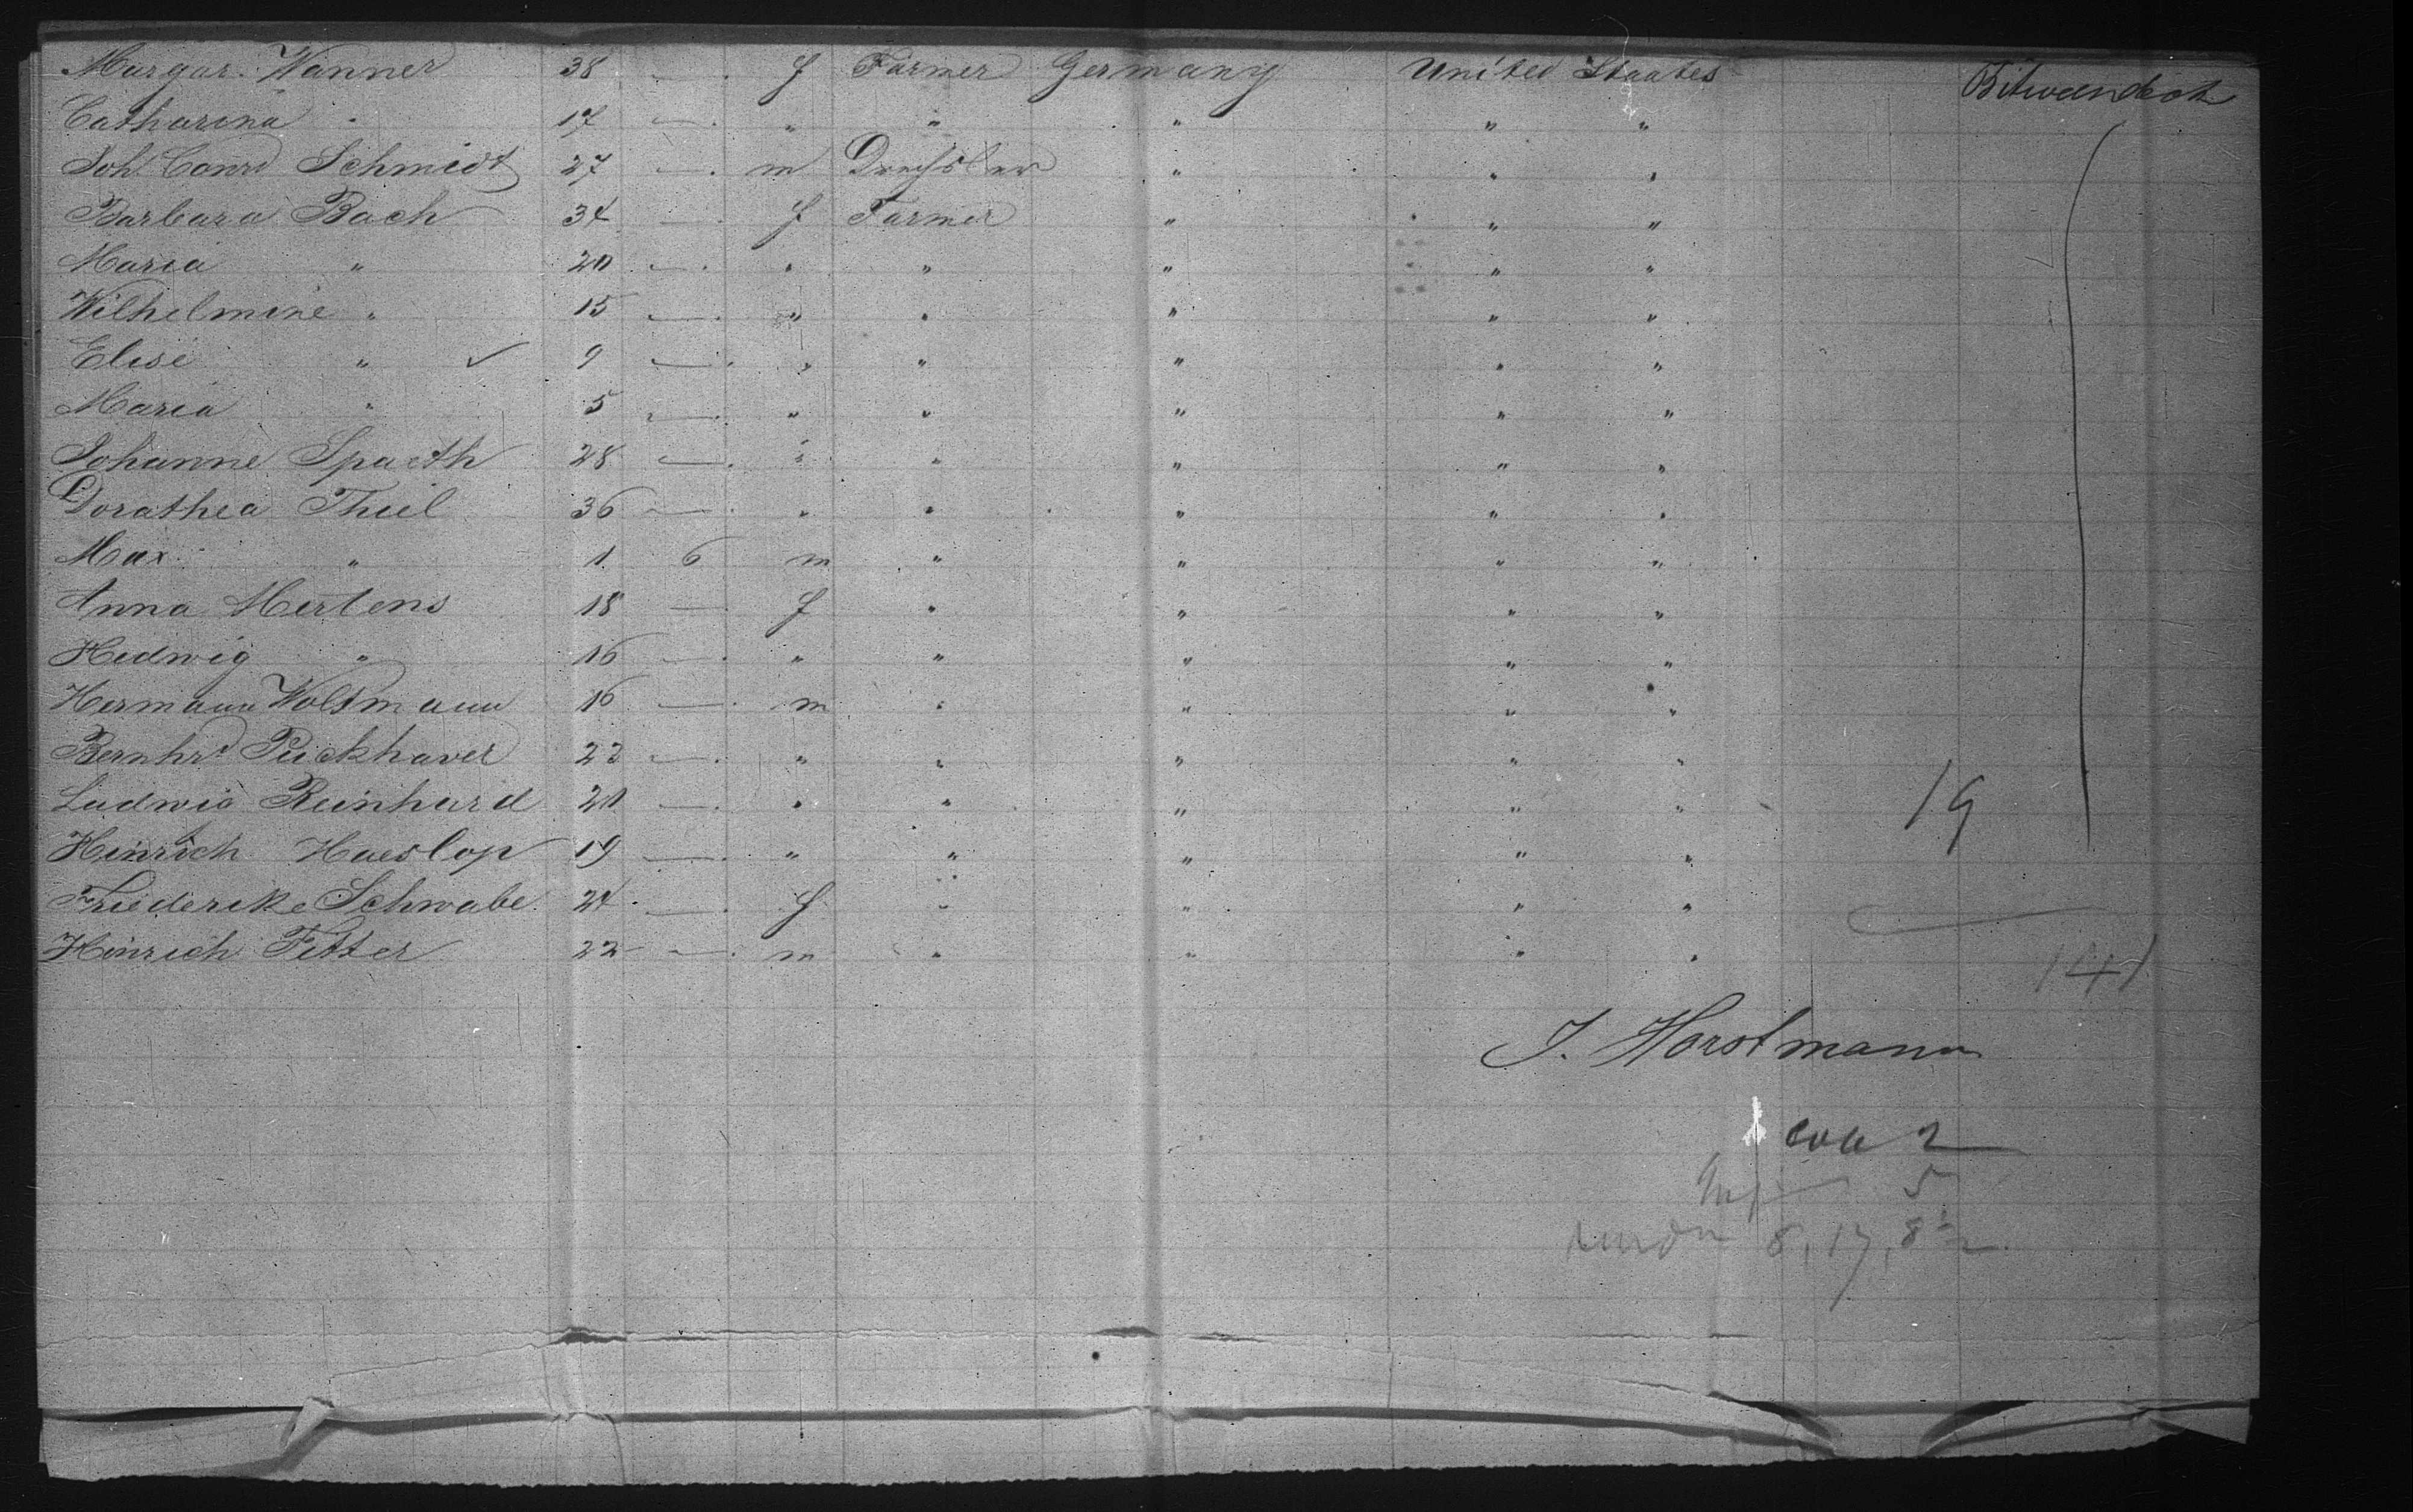 Margar. Wanner 38 — f Farmer Germany United Staates Betwendeck
Catharina " 17 — " " " " "
Joh. Conrd Schmidt 27 — m Drechsler " " "
Barbara Bach 34 — f Farmer " " "
Maria " 20 — " " " " "
Wilhelmine " 15 — " " " " "
Elise " ✓ 9 — " " " " "
Maria " 5 — " " " " "
Johanne Spaeth 28 — " " " " "
Dorathea Thiel 36 — " " " " "
Max " 1 6 m " " " "
Anna Mertens 18 — f " " " "
Hedwig " 16 — " " " " "
Hermann Woltmann 16 — m " " " "
Bernhrd Pückhaver 22 — " " " " "
Ludwig Reinhard 20 — " " " " " 19
Hinrich Haeslop 19 — " " " " "
Friedericke Schwabe 24 — f " " " "
Hinrich Fitter 22 — m " " " "
141
J. Horstmann
2
5
8, 17, 8